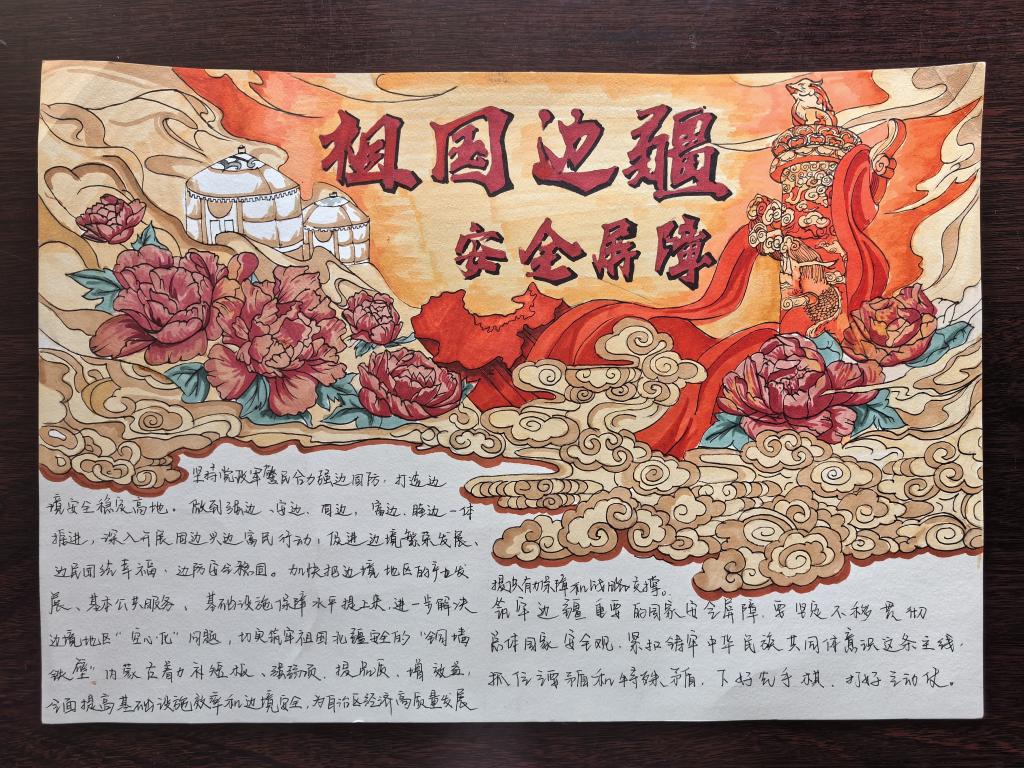 祖国边疆
安全屏障
坚持党政军警民合力强边固防，打造边
境安全稳定高地。做到强边、安边、固边、富边、睦边一体
推进，深入开展固边兴边富民行动，促进边境繁荣发展、
边民团结幸福、边防安全稳固。加快把边境地区的产业发
展、基本公共服务、基础设施保障水平提上来，进一步解决
边境地区“空心化”问题，切实筑牢祖国北疆安全的“铜墙
铁壁”内蒙古着力补短板、强弱项、提品质、增效益，
全面提高基础设施效率和边境安全，为自治区经济高质量发展
提供有力保障和战略支撑。
筑牢边疆重要的国家安全屏障，要坚定不移贯彻
总体国家安全观，紧扣铸牢中华民族共同体意识这条主线，
抓住主要矛盾和特殊矛盾，下好先手棋，打好主动仗。